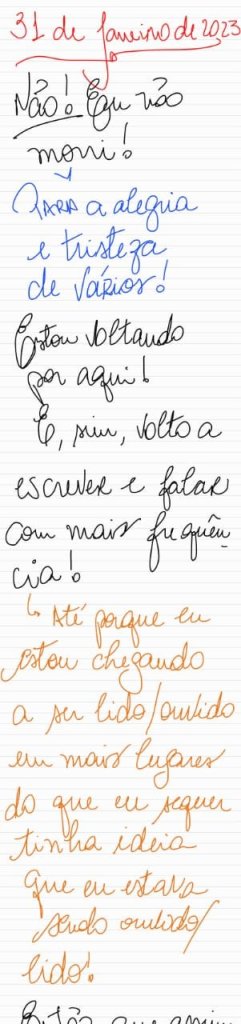 31 de Janeiro de 2023
Não! Eu não
morri!
PARA a alegria
e tristeza
de vários!
Estou voltando
por aqui!
E, sim, volto a
escrever e falar
com mais frequên
cia!
↳ Até porque eu
estou chegando
a ser lido/ouvido
em mais lugares
do que eu sequer
tinha ideia
que eu estava
sendo ouvido/
lido!